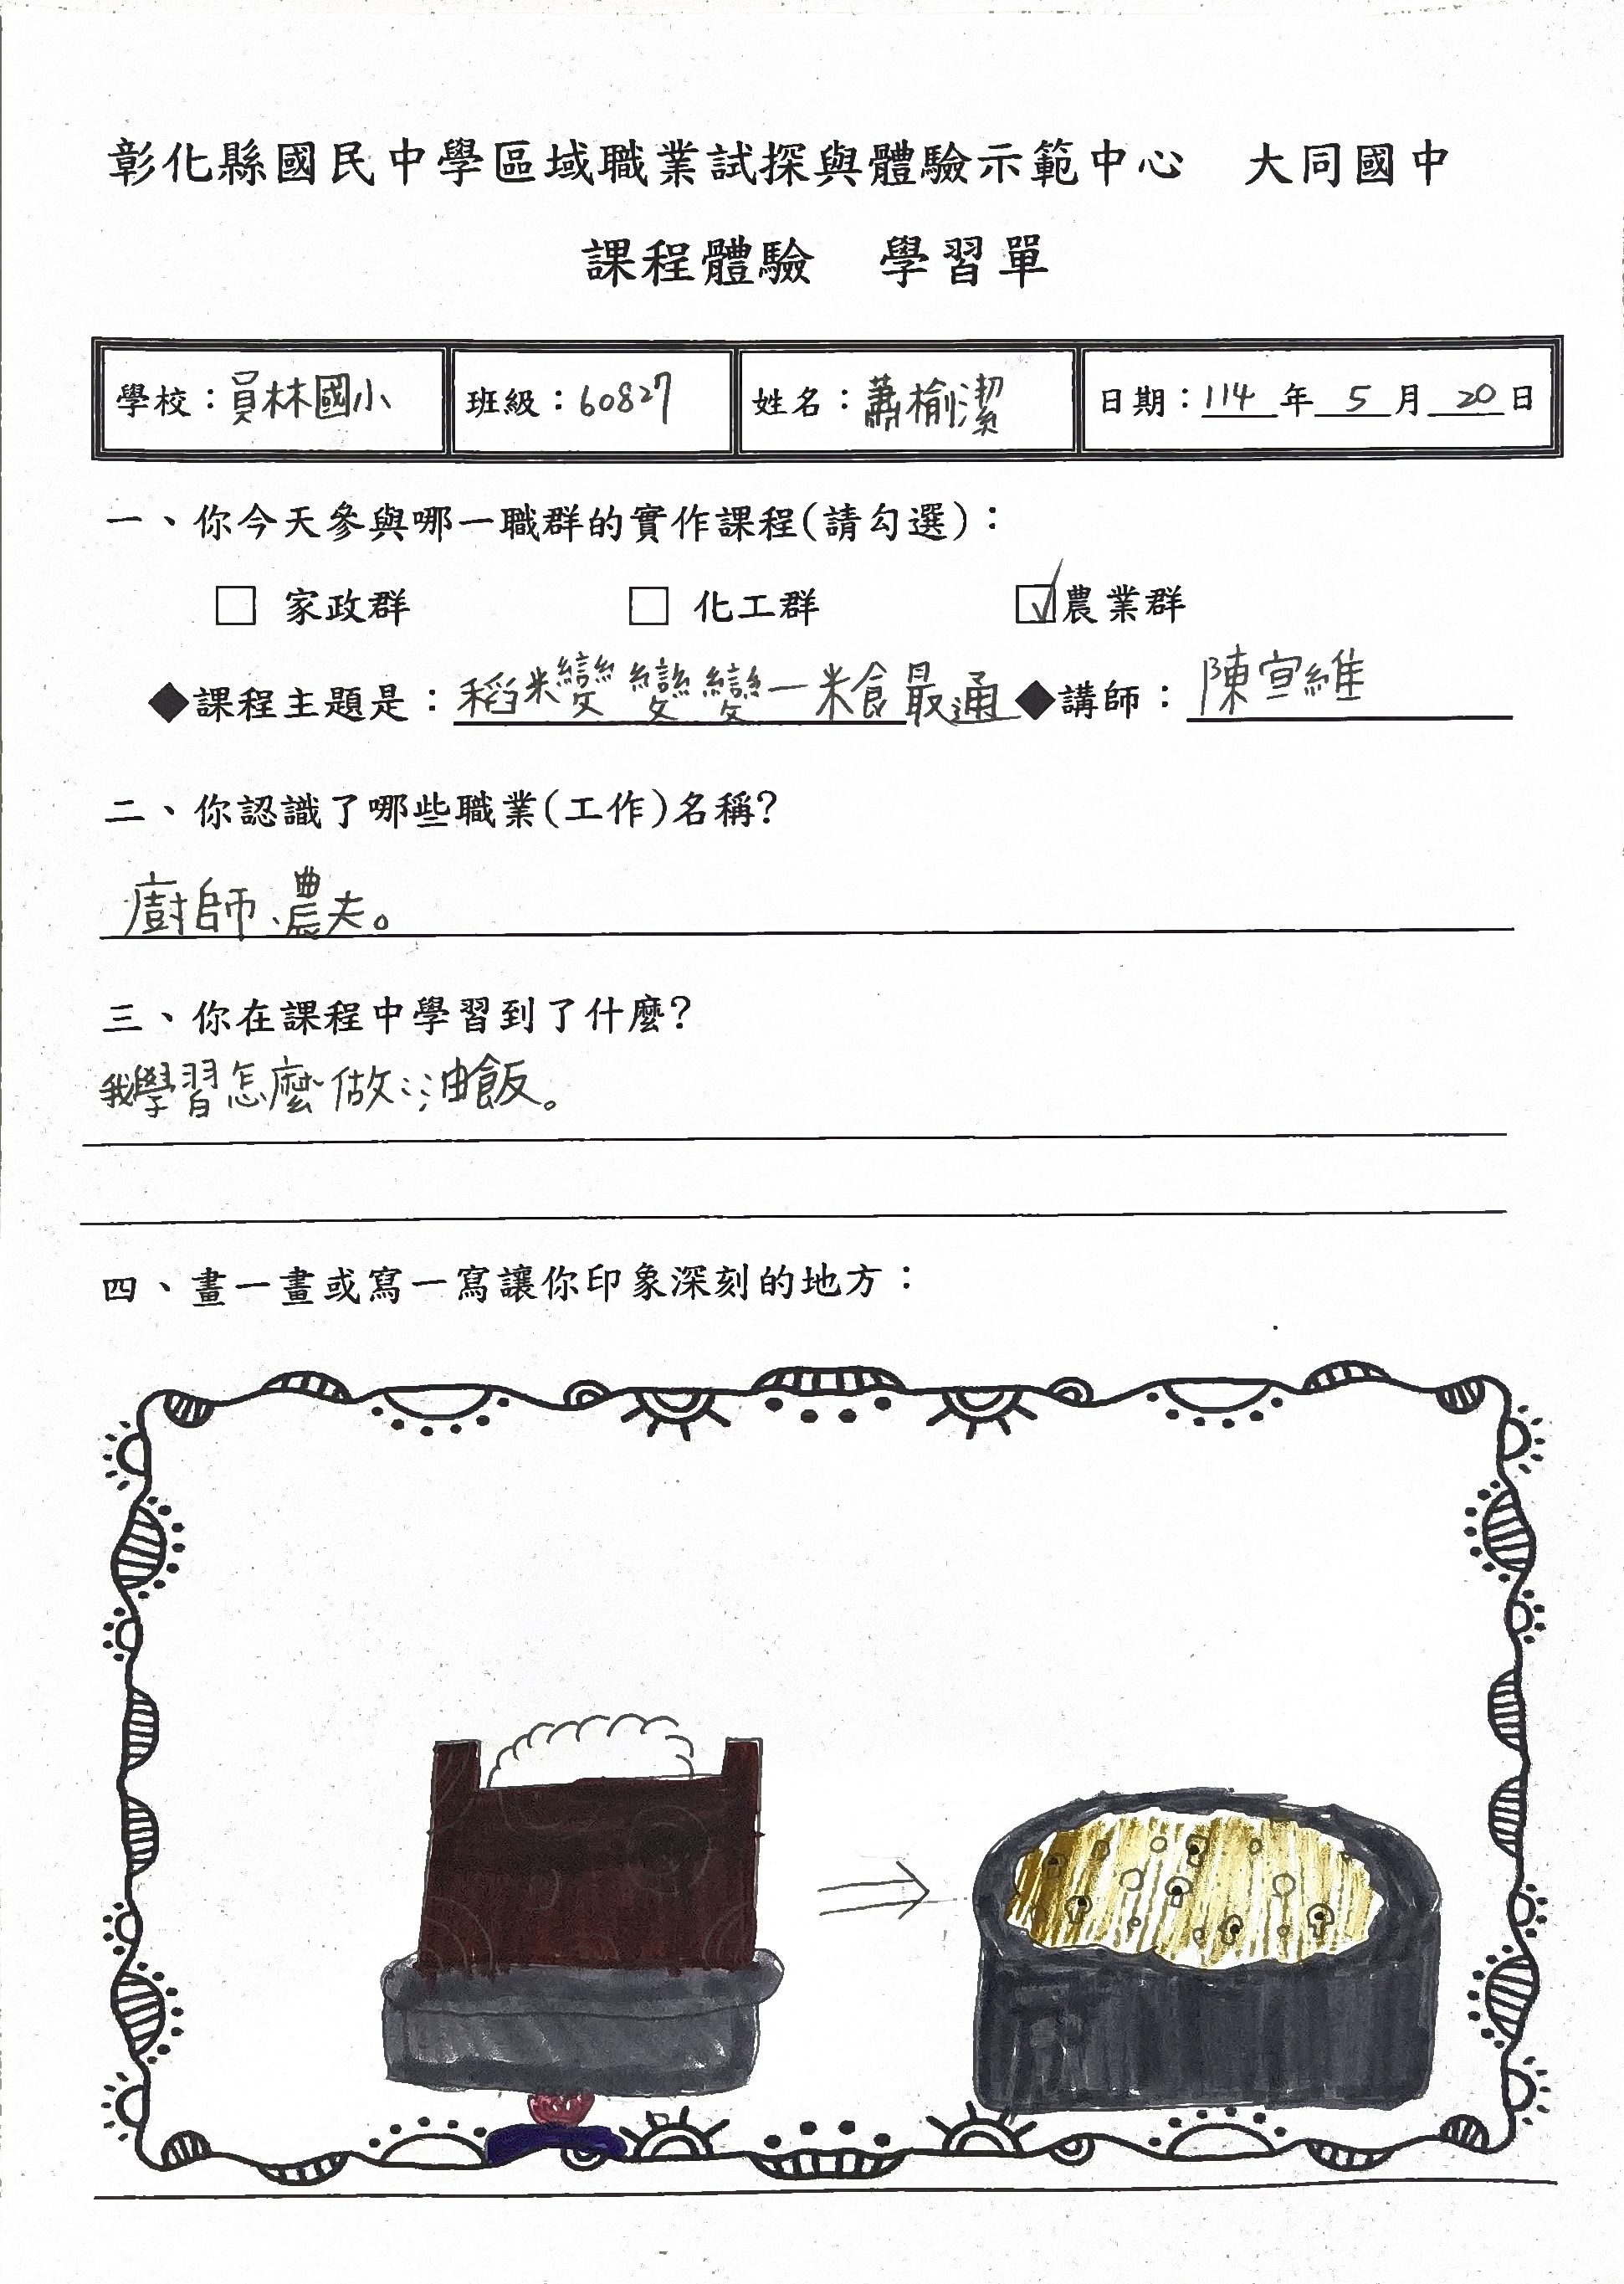 彰化縣國民中學區域職業試探與體驗示範中心　大同國中
課程體驗　學習單
學校：員林國小　班級：60827　姓名：蕭榆潔　日期：114年5月20日
一、你今天參與哪一職群的實作課程(請勾選)：
□ 家政群　□ 化工群　☑農業群
◆課程主題是：稻米變變變一米食最通◆講師：陳宣維
二、你認識了哪些職業(工作)名稱?
廚師、農夫。
三、你在課程中學習到了什麼?
我學習怎麼做油飯。
四、畫一畫或寫一寫讓你印象深刻的地方：